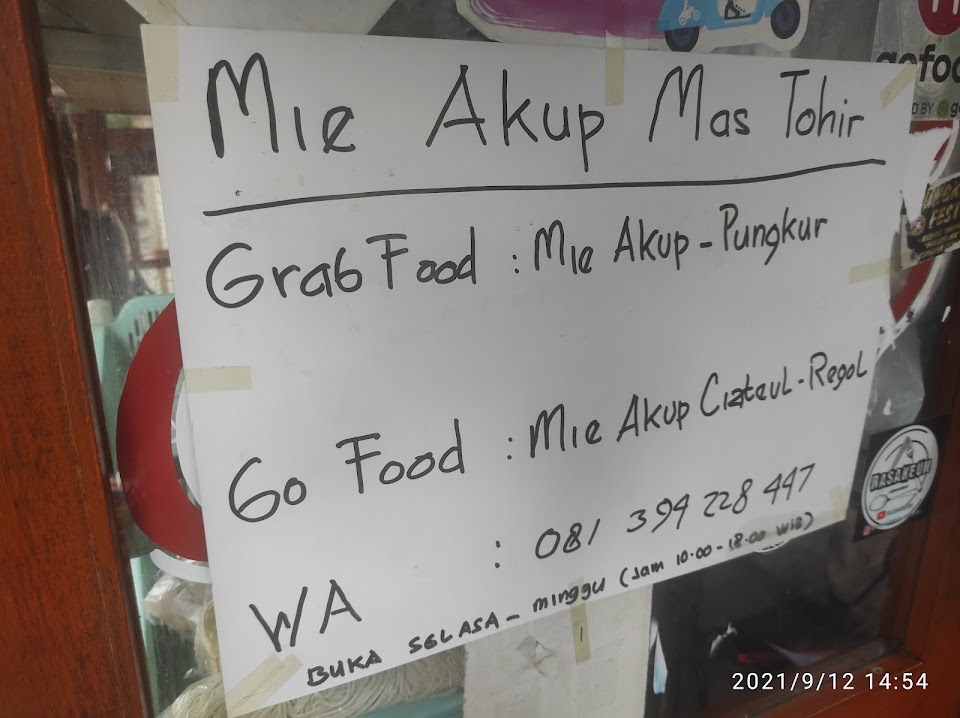 Mie Akup Mas Tohir
Grab Food : Mie Akup - Pungkur
Go Food : Mie Akup Ciateul - Regol
WA : 081 394 228 447
BUKA SELASA - minggu (Jam 10.00 - 18.00 WIB)
RASAKEUN
2021/9/12 14:54